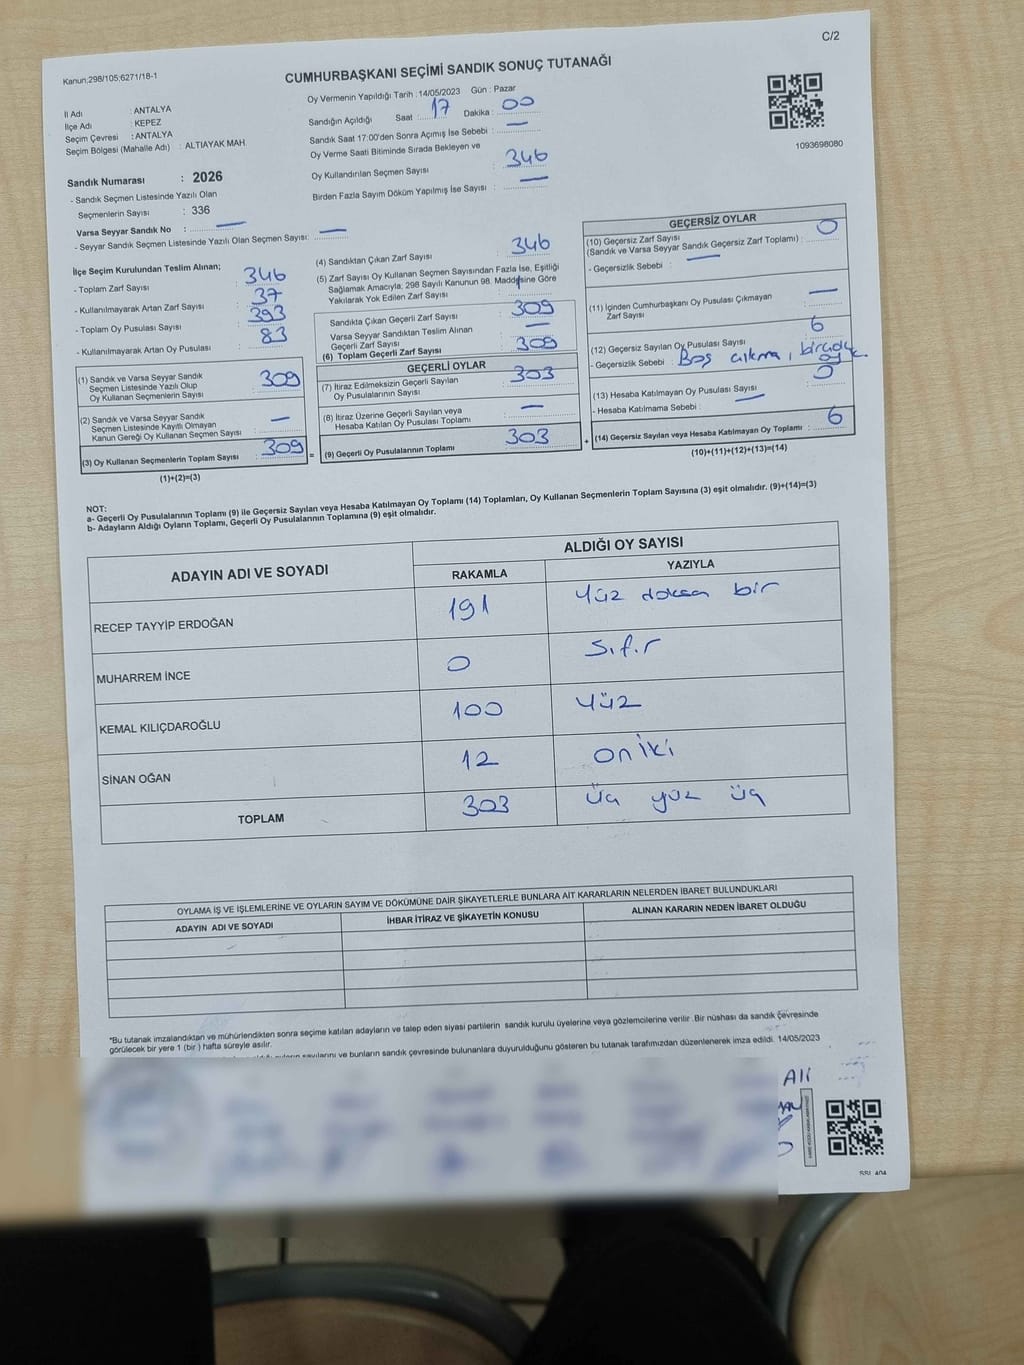 C/2
Kanun:298/105:6271/18-1
CUMHURBAŞKANI SEÇİMİ SANDIK SONUÇ TUTANAĞI
İl Adı : ANTALYA
İlçe Adı : KEPEZ
Seçim Çevresi : ANTALYA
Seçim Bölgesi (Mahalle Adı) : ALTIAYAK MAH.
Oy Vermenin Yapıldığı Tarih : 14/05/2023 Gün : Pazar
Sandığın Açıldığı Saat : 17 Dakika : 00
Sandık Saat 17:00'den Sonra Açımış İse Sebebi : —
Oy Verme Saati Bitiminde Sırada Bekleyen ve
Oy Kullandırılan Seçmen Sayısı : 346
Birden Fazla Sayım Döküm Yapılmış İse Sayısı : —
1093698080
Sandık Numarası : 2026
- Sandık Seçmen Listesinde Yazılı Olan
Seçmenlerin Sayısı : 336
Varsa Seyyar Sandık No : —
- Seyyar Sandık Seçmen Listesinde Yazılı Olan Seçmen Sayısı: —
İlçe Seçim Kurulundan Teslim Alınan;
- Toplam Zarf Sayısı : 346
- Kullanılmayarak Artan Zarf Sayısı : 37
- Toplam Oy Pusulası Sayısı : 393
- Kullanılmayarak Artan Oy Pusulası : 83
(1) Sandık ve Varsa Seyyar Sandık
Seçmen Listesinde Yazılı Olup
Oy Kullanan Seçmenlerin Sayısı : 309
(2) Sandık ve Varsa Seyyar Sandık
Seçmen Listesinde Kayıtlı Olmayan
Kanun Gereği Oy Kullanan Seçmen Sayısı : —
(3) Oy Kullanan Seçmenlerin Toplam Sayısı : 309
(1)+(2)=(3)
(4) Sandıktan Çıkan Zarf Sayısı : 346
(5) Zarf Sayısı Oy Kullanan Seçmen Sayısından Fazla İse, Eşitliği
Sağlamak Amacıyla; 298 Sayılı Kanunun 98. Maddesine Göre
Yakılarak Yok Edilen Zarf Sayısı :
Sandıkta Çıkan Geçerli Zarf Sayısı : 309
Varsa Seyyar Sandıktan Teslim Alınan
Geçerli Zarf Sayısı : —
(6) Toplam Geçerli Zarf Sayısı : 309
GEÇERLİ OYLAR
(7) İtiraz Edilmeksizin Geçerli Sayılan
Oy Pusulalarının Sayısı : 303
(8) İtiraz Üzerine Geçerli Sayılan veya
Hesaba Katılan Oy Pusulası Toplamı : —
(9) Geçerli Oy Pusulalarının Toplamı : 303
GEÇERSİZ OYLAR
(10) Geçersiz Zarf Sayısı
(Sandık ve Varsa Seyyar Sandık Geçersiz Zarf Toplamı) : 0
- Geçersizlik Sebebi : —
(11) İçinden Cumhurbaşkanı Oy Pusulası Çıkmayan
Zarf Sayısı : —
(12) Geçersiz Sayılan Oy Pusulası Sayısı : 6
- Geçersizlik Sebebi : Boş çıkma,
(13) Hesaba Katılmayan Oy Pusulası Sayısı : 0
- Hesaba Katılmama Sebebi : —
(14) Geçersiz Sayılan veya Hesaba Katılmayan Oy Toplamı : 6
(10)+(11)+(12)+(13)=(14)
NOT:
a- Geçerli Oy Pusulalarının Toplamı (9) ile Geçersiz Sayılan veya Hesaba Katılmayan Oy Toplamı (14) Toplamları, Oy Kullanan Seçmenlerin Toplam Sayısına (3) eşit olmalıdır. (9)+(14)=(3)
b- Adayların Aldığı Oyların Toplamı, Geçerli Oy Pusulalarının Toplamına (9) eşit olmalıdır.
ADAYIN ADI VE SOYADI ALDIĞI OY SAYISI
RAKAMLA YAZIYLA
RECEP TAYYİP ERDOĞAN 191 Yüz doksan bir
MUHARREM İNCE 0 Sıfır
KEMAL KILIÇDAROĞLU 100 Yüz
SİNAN OĞAN 12 on iki
TOPLAM 303 üç yüz üç
OYLAMA İŞ VE İŞLEMLERİNE VE OYLARIN SAYIM VE DÖKÜMÜNE DAİR ŞİKAYETLERLE BUNLARA AİT KARARLARIN NELERDEN İBARET BULUNDUKLARI
ADAYIN ADI VE SOYADI İHBAR İTİRAZ VE ŞİKAYETİN KONUSU ALINAN KARARIN NEDEN İBARET OLDUĞU
*Bu tutanak imzalandıktan ve mühürlendikten sonra seçime katılan adayların ve talep eden siyasi partilerin sandık kurulu üyelerine veya gözlemcilerine verilir .Bir nüshası da sandık çevresinde
görülecek bir yere 1 (bir ) hafta süreyle asılır.
sayılarını ve bunların sandık çevresinde bulunanlara duyurulduğunu gösteren bu tutanak tarafımızdan düzenlenerek imza edildi. 14/05/2023
Ali